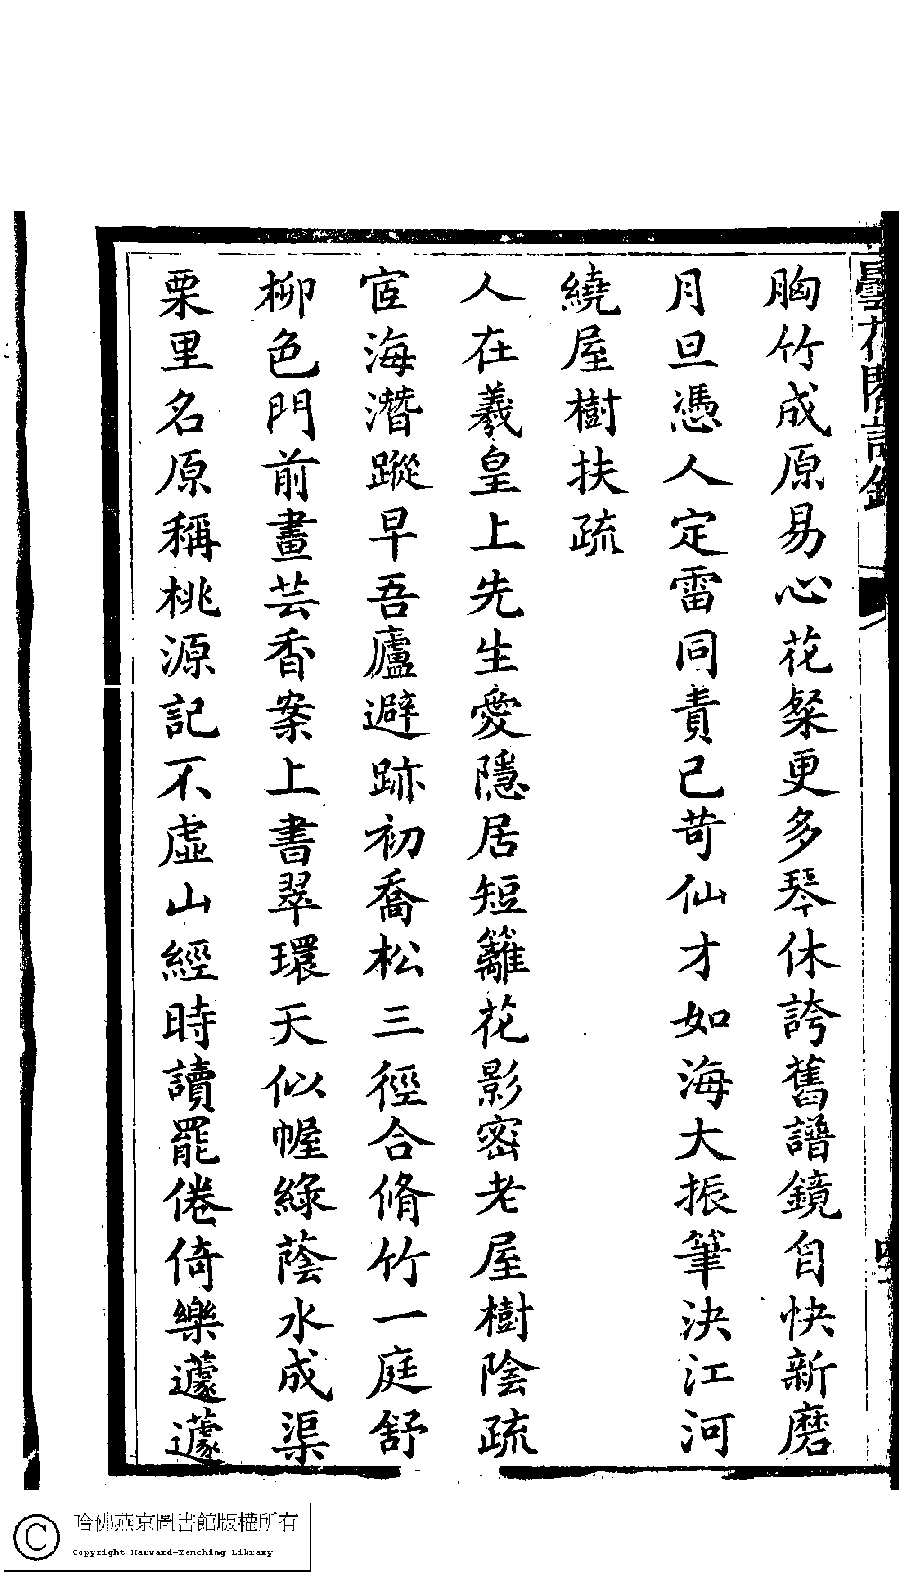 曇花閣詩鈔
胸竹成原易心花粲更多琴休誇舊譜鏡自快新磨
月旦憑人定雷同責己苛仙才如海大振筆決江河
繞屋樹扶疏
人在羲皇上先生愛隱居短籬花影密老屋樹陰疏
宦海潛蹤早吾廬避跡初喬松三徑合脩竹一庭舒
柳色門前畫芸香案上書翠環天似幄綠蔭水成渠
栗里名原稱桃源記不虛山經時讀罷倦倚樂蘧蘧
哈佛燕京圖書館版權所有
Copyright Harvard-Yenching Library